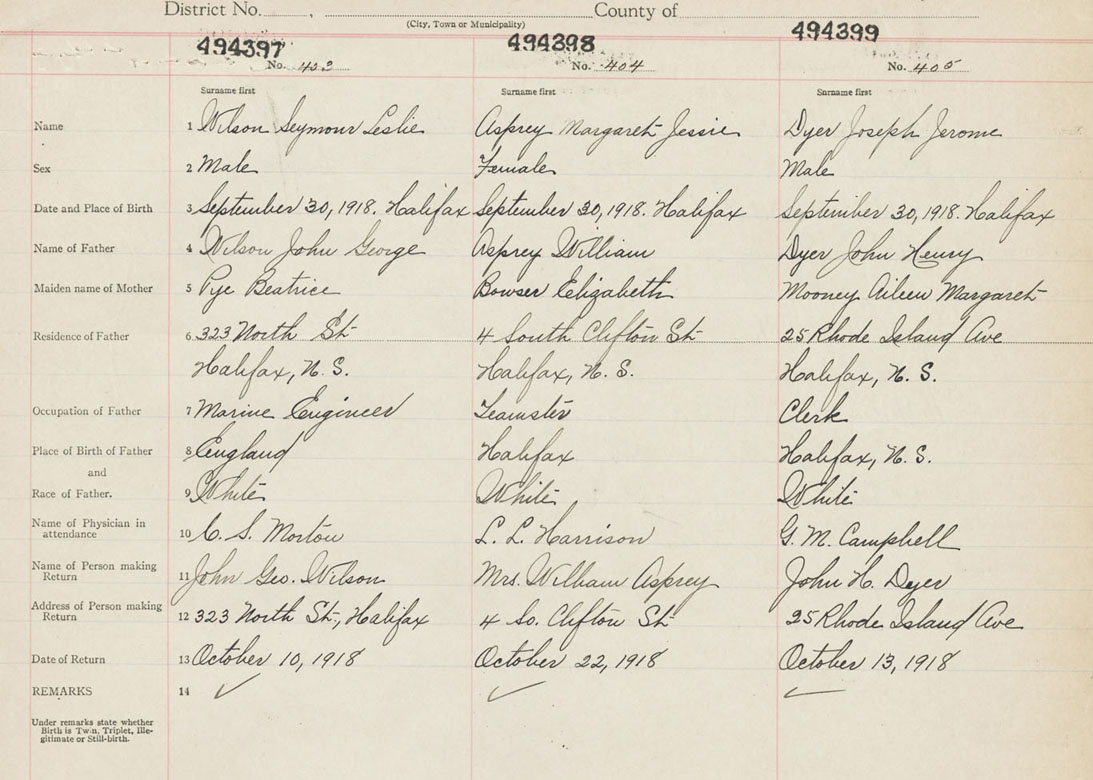 District No. , County of
(City, Town or Municipality)
494397 494398 494399
No. 403 No. 404 No. 405
Surname first Surname first Surname first
Name 1 Wilson Seymour Leslie Asprey Margaret Jessie Dyer Joseph Jerome
Sex 2 Male Female Male
Date and Place of Birth 3 September 30, 1918. Halifax September 30, 1918. Halifax September 30, 1918. Halifax
Name of Father 4 Wilson John George Asprey William Dyer John Henry
Maiden name of Mother 5 Pye Beatrice Bowser Elizabeth Mooney Aileen Margaret
Residence of Father 6 323 North St 4 South Clifton St 25 Rhode Island Ave
Halifax, N. S. Halifax, N. S. Halifax, N. S.
Occupation of Father 7 Marine Engineer Teamster Clerk
Place of Birth of Father 8 England Halifax Halifax, N. S.
and
Race of Father. 9 White White White
Name of Physician in
attendance 10 C. S. Morton L. L. Harrison G. M. Campbell
Name of Person making
Return 11 John Geo. Wilson Mrs. William Asprey John H. Dyer
Address of Person making
Return 12 323 North St., Halifax 4 So. Clifton St 25 Rhode Island Ave
Date of Return 13 October 10, 1918 October 22, 1918 October 13, 1918
REMARKS 14
Under remarks state whether
Birth is Twin, Triplet, Ille-
gitimate or Still-birth.